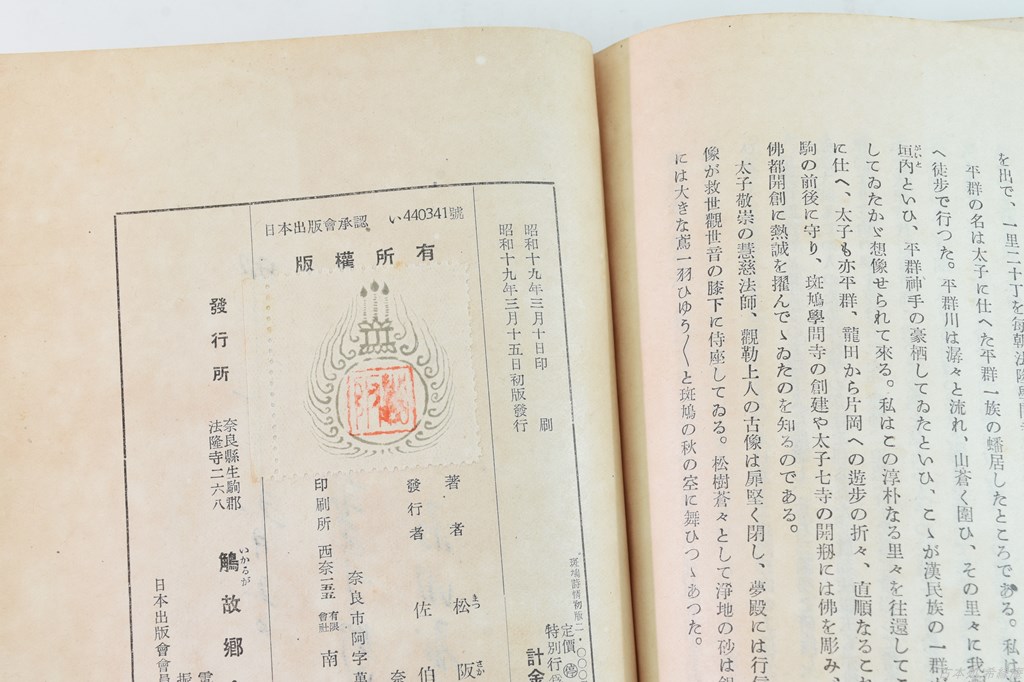 を出で、一里二十丁を毎朝法隆學問寺
へ徒歩で行つた。平群川は潺々と流れ、山蒼く圍ひ、その里々に我
平群の名は太子に仕へた平群一族の蟠居したところである。私は
垣內といひ、平群神手の豪栖してゐたといひ、こゝが漢民族の一群
がいと
してゐたかゞ想像せられて來る。私はこの淳朴なる里々を往還してこ
に仕へ、太子も亦平群、龍田から片岡への遊歩の折々、直順なるこ
駒の前後に守り、斑鳩學問寺の創建や太子七寺の開剏には佛を彫み、
佛都開創に熱誠を擢んでゝゐたのを知るのである。
太子敬崇の慧慈法師、觀勒上人の古像は扉堅く閉し、夢殿には行信
像が救世觀世音の膝下に侍座してゐる。松樹蒼々として淨地の砂は銀
には大きな鳶一羽ひゆう〱と斑鳩の秋の空に舞ひつゝあつた。
斑鳩
定價
特別行
計金
昭和十九年三月十日印刷
昭和十九年三月十五日初版發行
日本出版會承認 い440341號
版權所有
著者 松阪
まつ さか
發行者 佐伯
奈良市阿字萬
印刷所 西奈一五五 有限會社 南
發行所 奈良縣生駒郡法隆寺二六八
鵤故鄕
いかるが
日本出版會會員
電
振